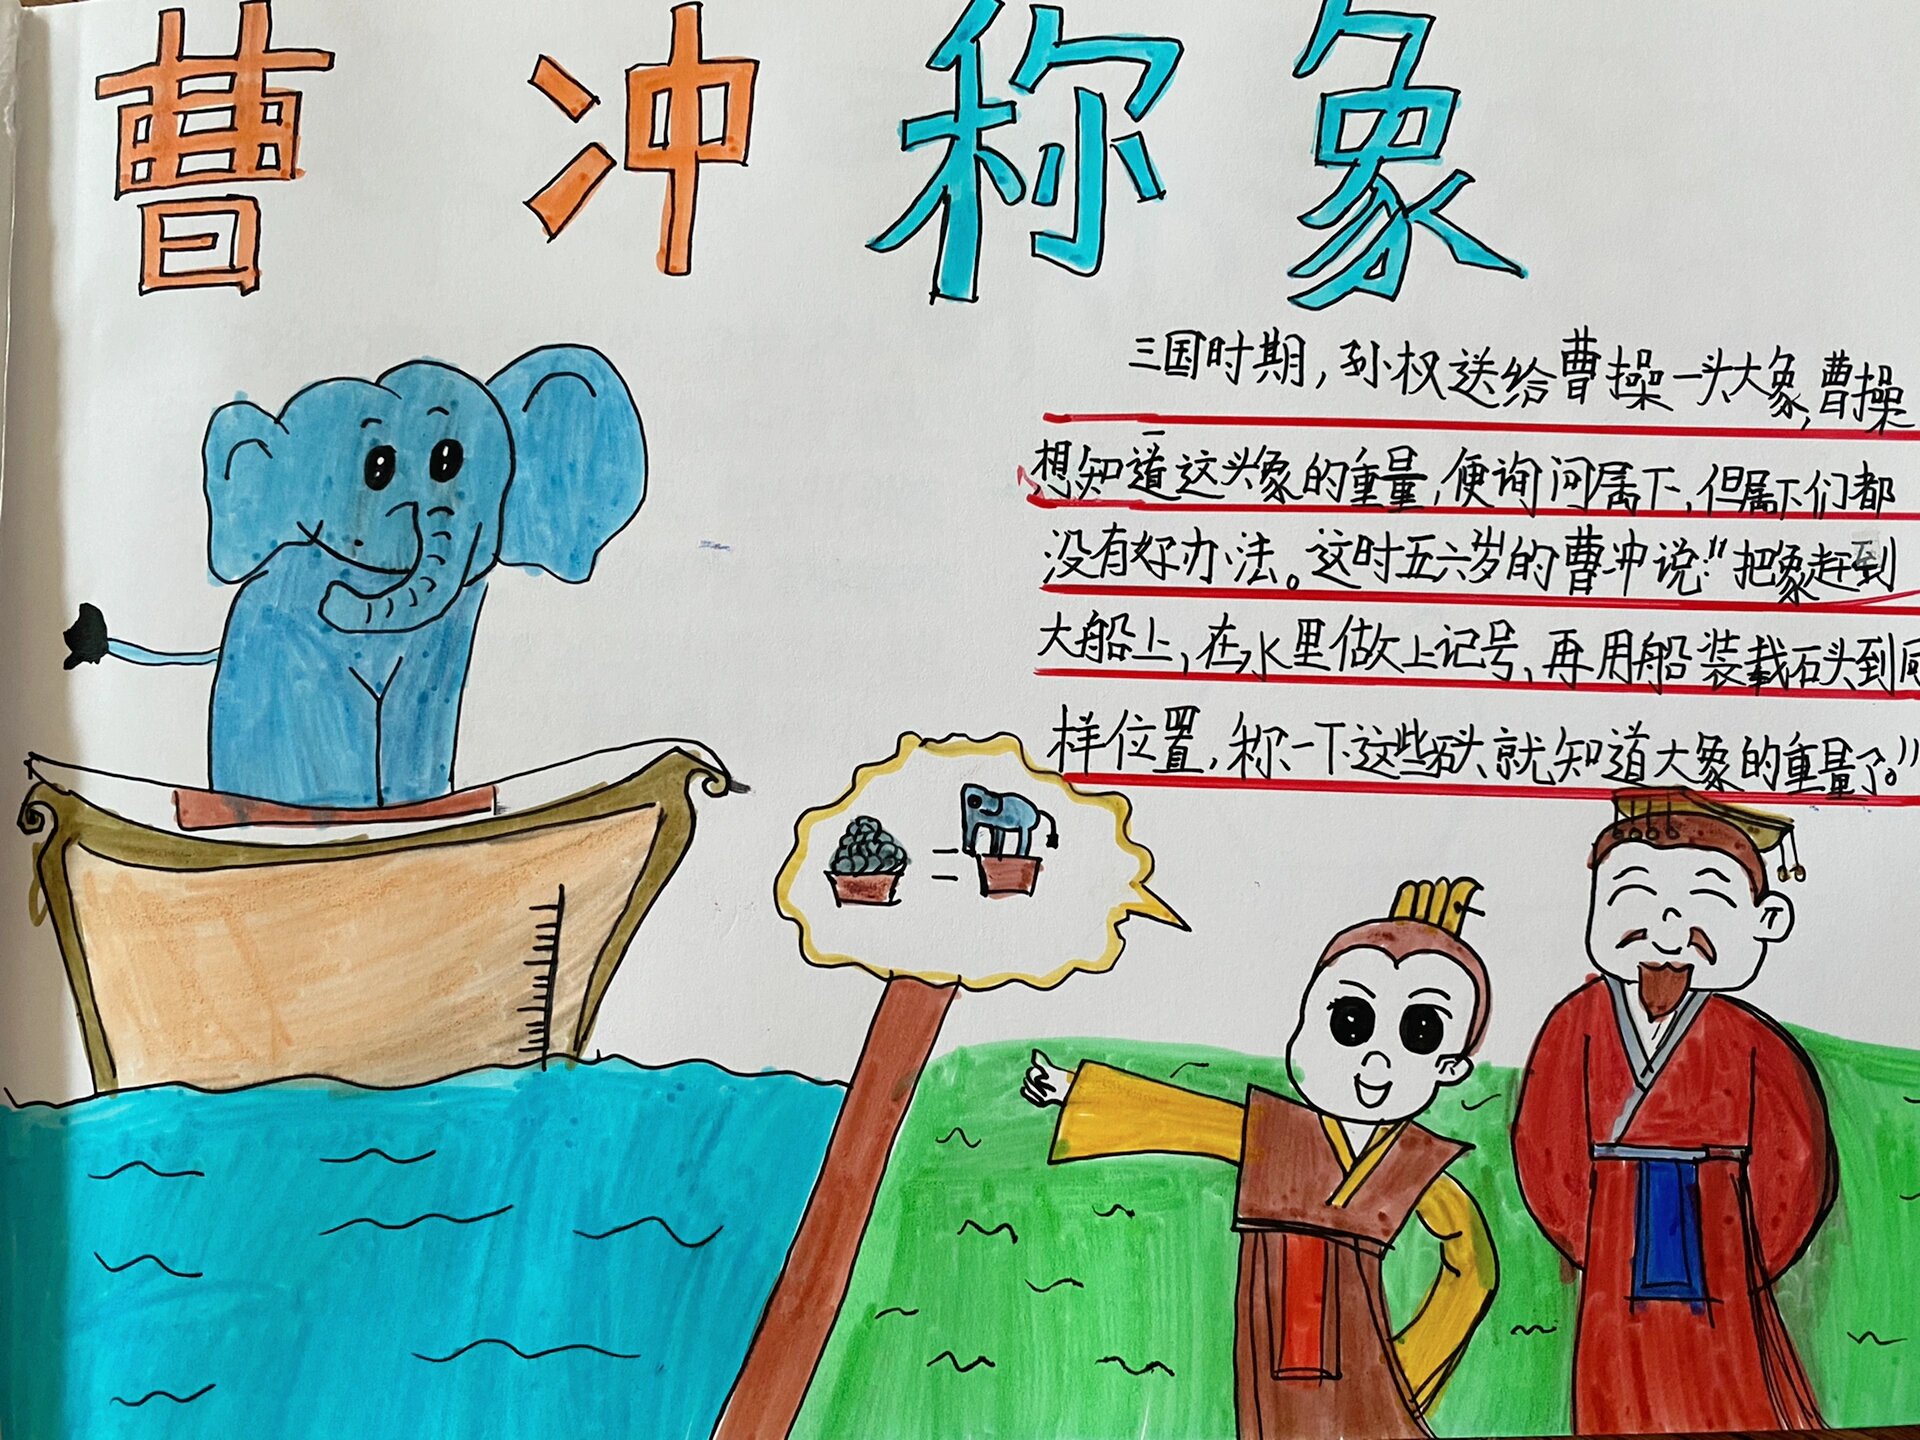 曹冲称象
三国时期,孙权送给曹操一头大象,曹操
想知道这头象的重量,便询问属下,但属下们都
没有好办法。这时五六岁的曹冲说:"把象赶到
大船上,在水里做上记号,再用船装载石头到同
样位置,称一下这些石头就知道大象的重量了。"
=